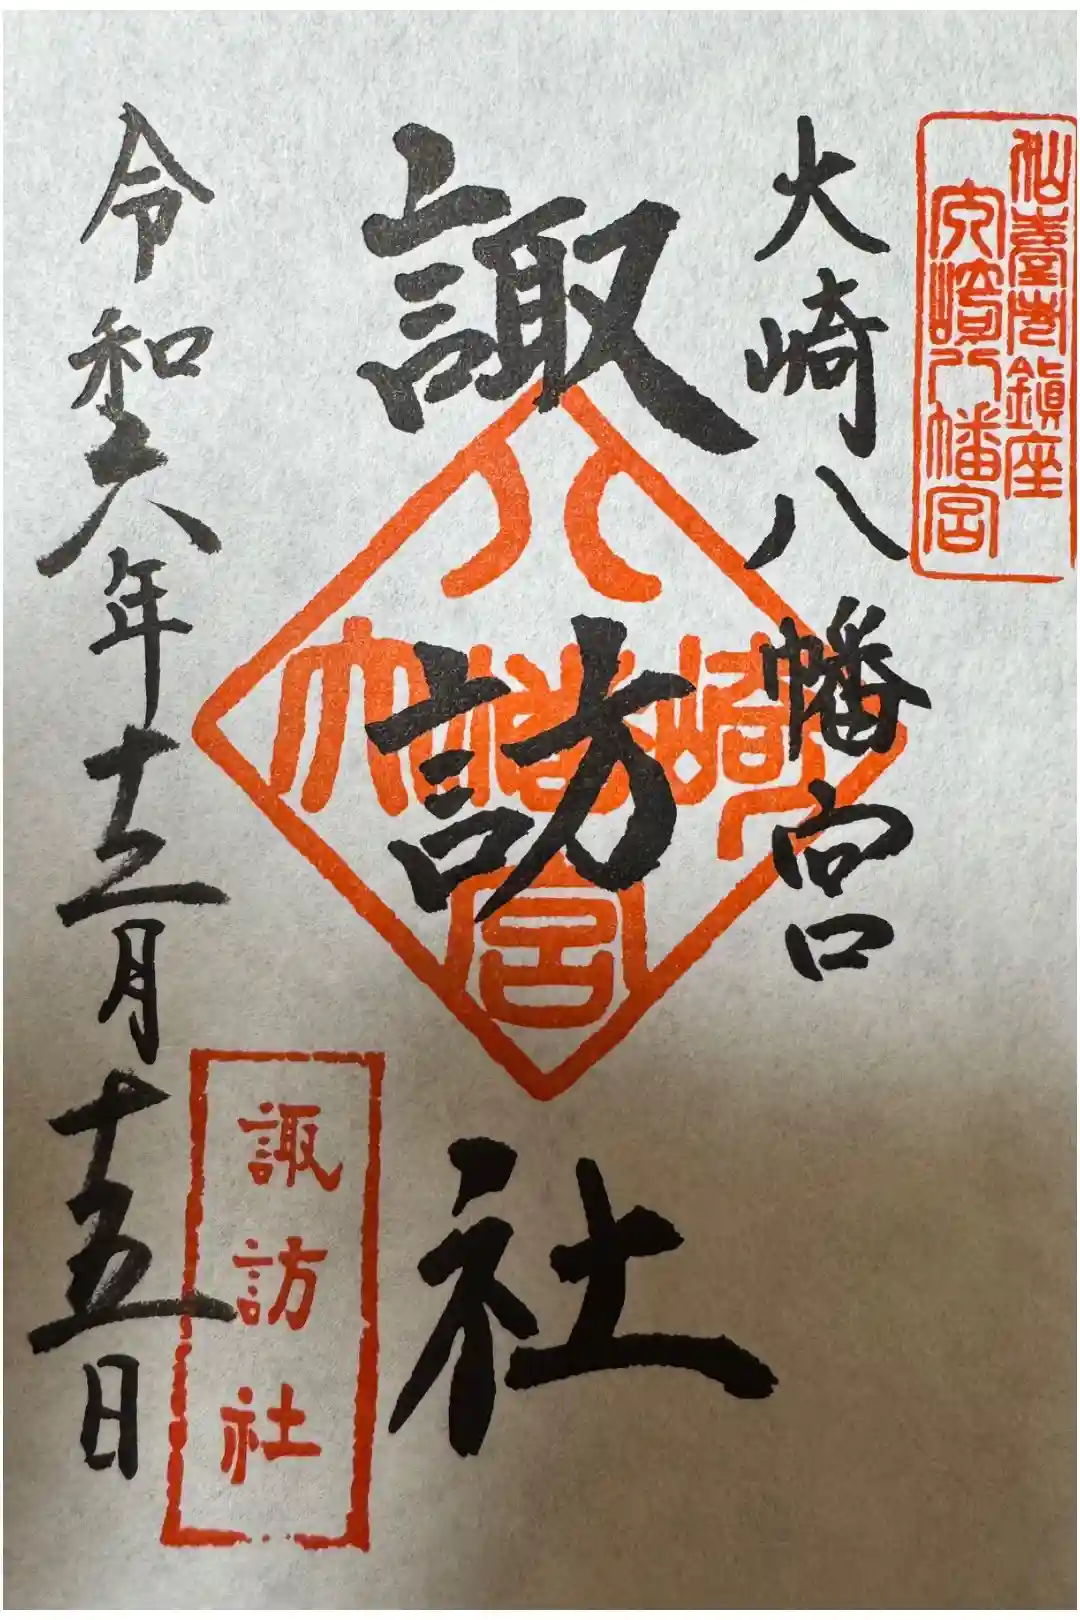 仙臺市鎮座
大崎八幡宮
大崎八幡宮
諏訪社
大崎八幡宮
令和六年十二月十五日
諏訪社